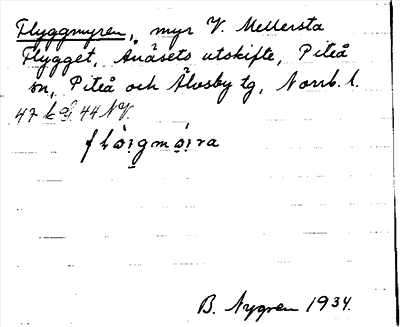 Flyggmyren, myr V. Mellersta
Flygget, Anäsets utskifte, Piteå
sn, Piteå och Älvsby tg, Norrb. l.
47 G. 44 NV.
B. Nygren 1934.